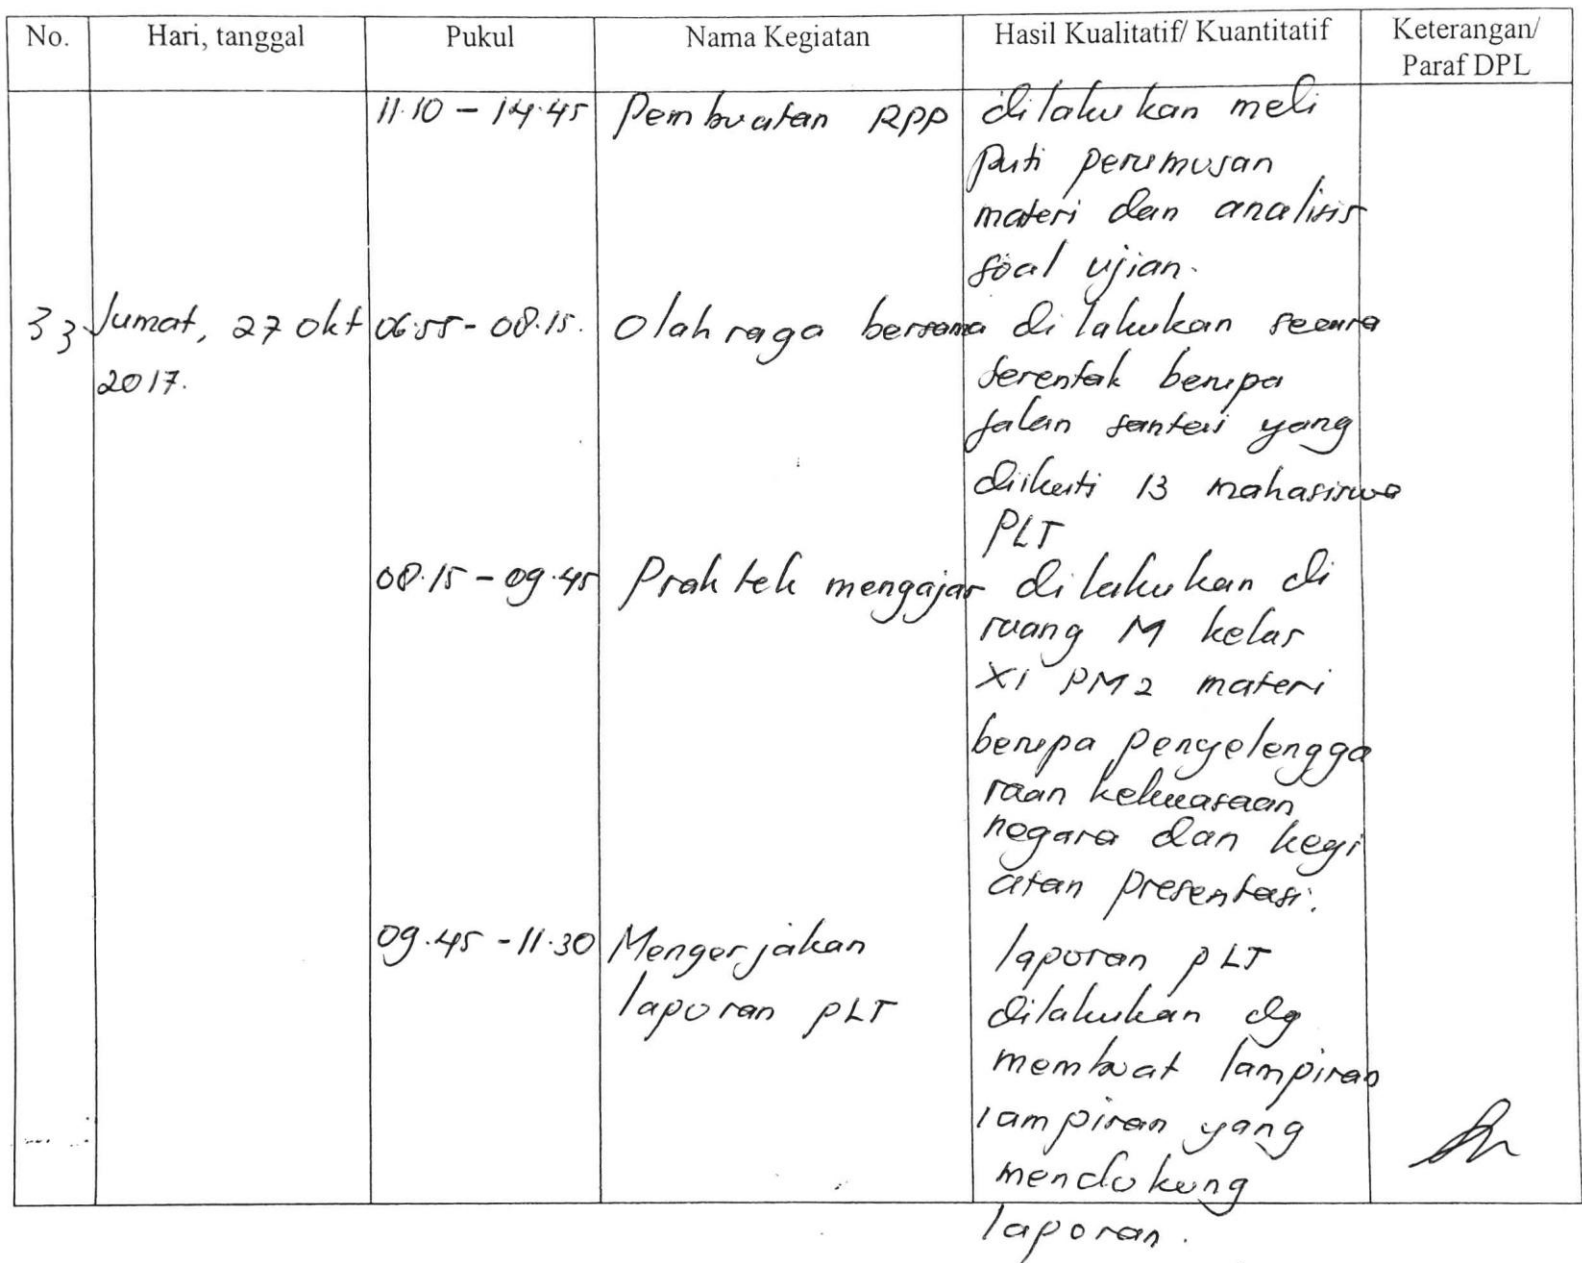 No. Hari, tanggal Pukul Nama Kegiatan Hasil Kualitatif/ Kuantitatif Keterangan/
Paraf DPL
11.10 - 14.45 Pembuatan RPP dilakukan meli
puti perumusan
materi dan analisis
soal ujian.
33 Jumat, 27 Okt 06.55 - 08.15. Olahraga bersama dilakukan secara
2017. serentak berupa
jalan santai yang
diikuti 13 mahasiswa
PLT
08.15 - 09.45 Praktek mengajar dilakukan di
ruang M kelas
XI PM2 materi
berupa penyelengga
raan kekuasaan
negara dan kegi
atan presentasi.
09.45 - 11.30 Mengerjakan laporan PLT
laporan PLT dilakukan dg
membuat lampiran
lampiran yang
mendukung
laporan.